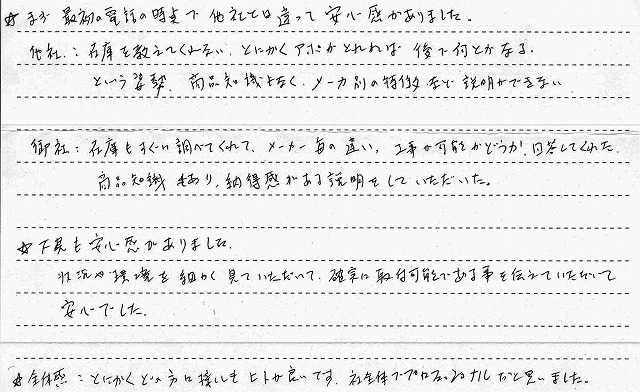 ☆まず最初の電話の時点で他社とは違って安心感がありました。
他社：在庫を教えてくれない、とにかくアポがとれれば後で何とかなる
という姿勢、商品知識もなく、メーカ別の特徴など説明ができない
御社：在庫もすぐに調べてくれて、メーカー毎の違い、工事が可能かどうか、回答してくれた。
商品知識もあり、納得感がある説明をしていただいた。
☆下見も安心感がありました。
状況や環境を細かく見ていただいて、確実に取付可能である事を伝えていただいて
安心でした。
☆全体感：とにかくどの方に接してもヒトが良いです、社全体でプロフェッショナルだと思いました。